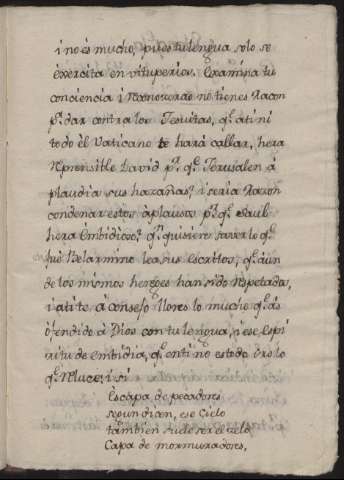 i no es mucho, pues tu lengua solo se
exercita en vituperios. Examina tu
conciencia i
no tienes raçon
pª. dar contra los Jesuitas, qº. a ti ni
todo el Vaticano te hará callar, hera
Reprensible David pº. qº. Jerusalen á
plaudia sus hazañas? i sería Raçon
condenar estos aplausos pº. qº. Saul
hera embidioso? qⁿ. quisiere saver lo qº.
fue Velarmino lea sus escritos, qº. áun
de los mismos hereges han sido Respetados,
i a ti te aconsejo llores lo mucho qº. ás
ofendido á Dios con tu lengua, i ese espi
ritu de embidia, qº. en ti no es todo oro lo
qº. Reluce, i si
Escapa de pecadores
segun dicen, ese Cielo
tambien suele ser el velo
Capa de mormuradores,